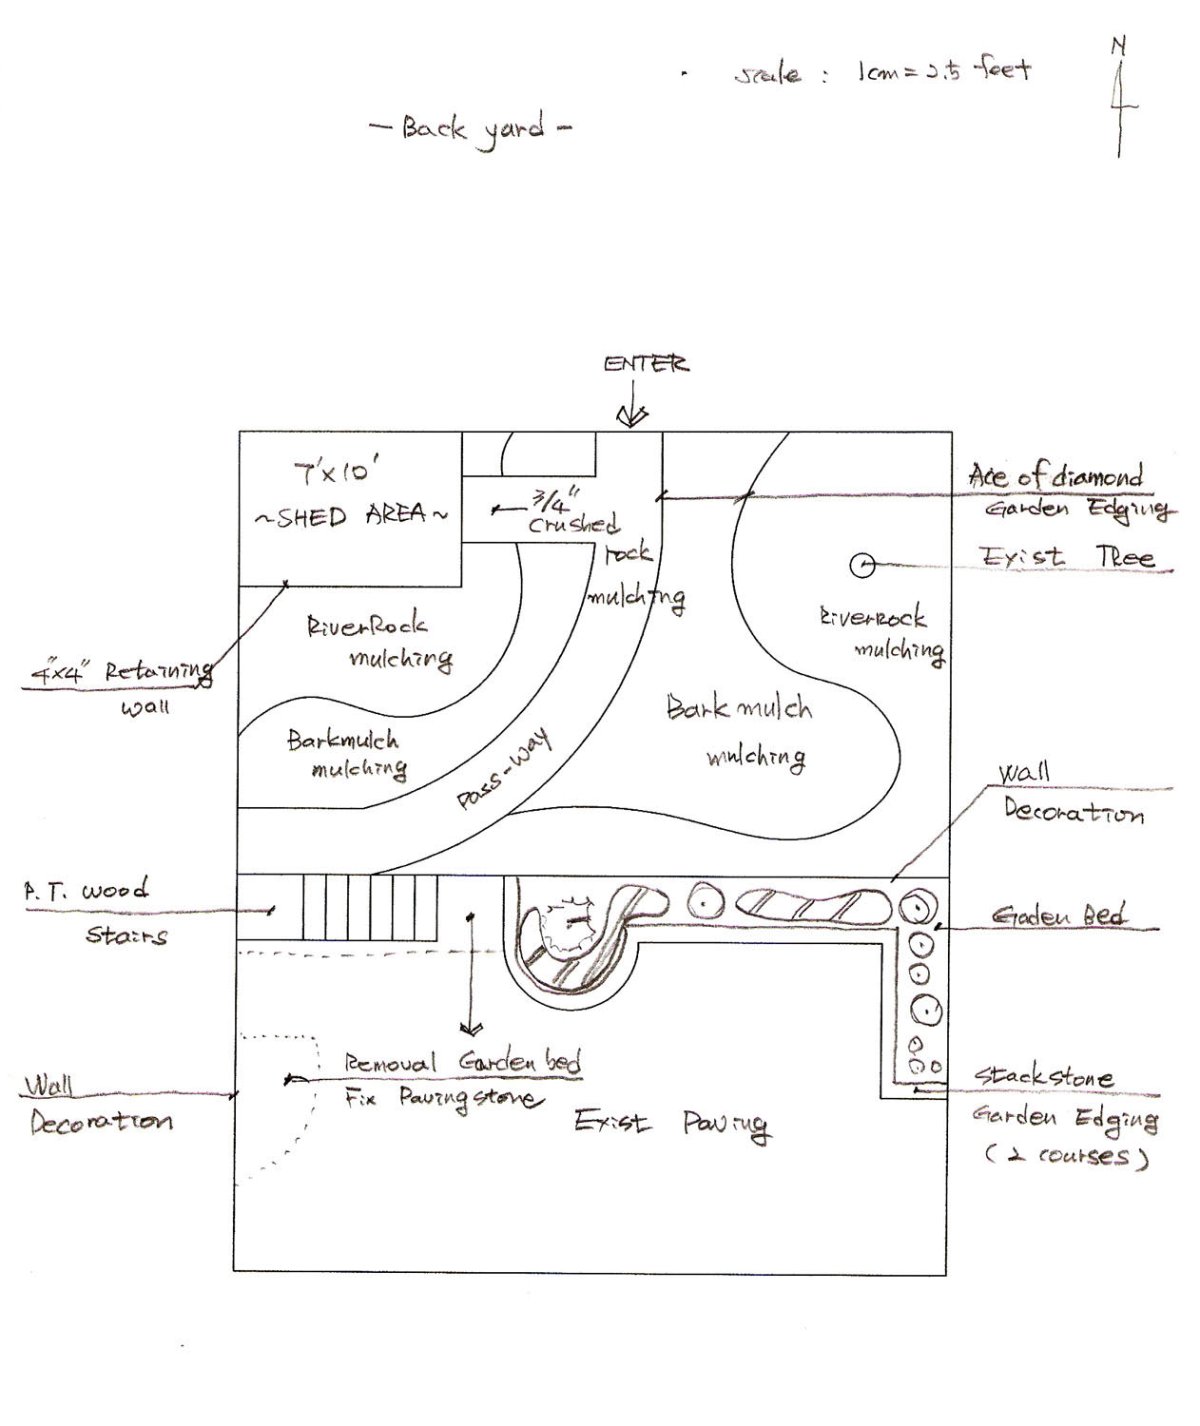 N
scale : 1cm = 2.5 feet
- Back yard -
ENTER
7'x10'
~SHED AREA~
3/4"
crushed
rock
mulching
Ace of diamond
Garden Edging
Exist Tree
RiverRock
mulching
RiverRock
mulching
4"x4" Retaining
wall
Bark mulch
mulching
Barkmulch
mulching
Pass-way
Wall
Decoration
P.T. wood
Stairs
Gaden Bed
Removal Garden bed
Fix Paving stone
Wall
Decoration
Exist Paving
Stack stone
Garden Edging
(2 courses)